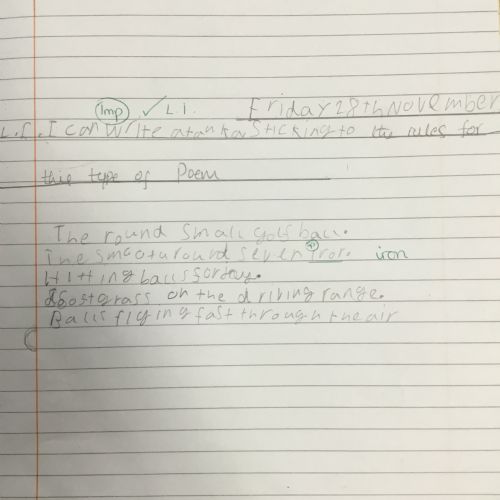 Imp ✓ L.I.
Friday 28th November
L.I. I can write a tanka sticking to the rules for
this type of Poem
The round small golf ball.
The smooturound seven iror. iron
Hitting balls for
grass on the driving range.
Balls flying fast through the air